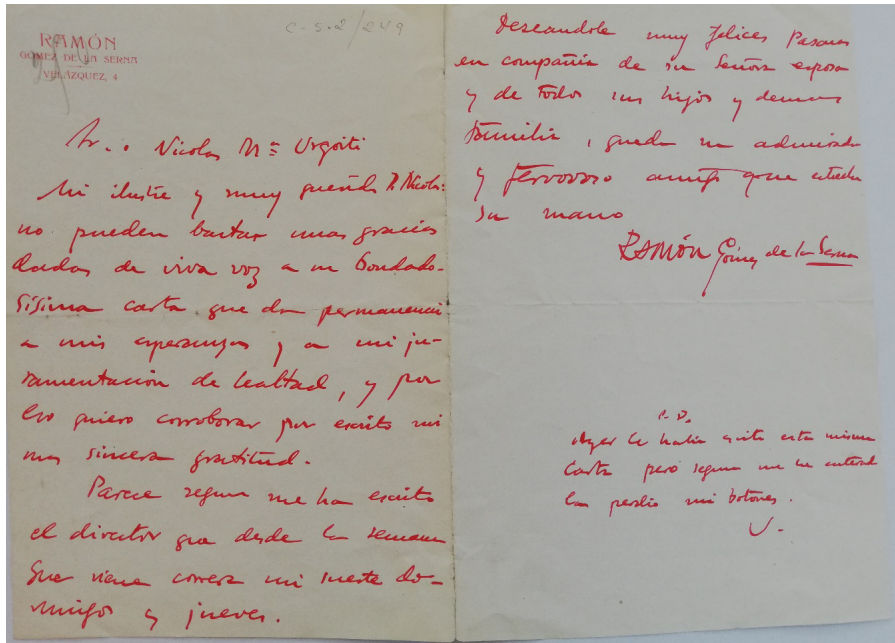 RAMÓN
GÓMEZ DE LA SERNA
VELÁZQUEZ, 4
C-5-2/249
Sr. D. Nicolas Mª Urgoiti
Mi ilustre y muy querido D. Nicolas:
no pueden bastar unas gracias
dadas de viva voz a su bondado-
sisima carta que da permanencia
a mis esperanzas y a mi ju-
ramentación de lealtad, y por
eso quiero corroborar por escrito mi
mas sincera gratitud.
Parece segun me ha escrito
el director que desde la semana
que viene correra mi suerte do-
mingos y jueves.
Deseandole muy felices Pascuas
en compañia de su Señora esposa
y de todos sus hijos y demas
familia, queda su admirador
y fervoroso amigo que estrecha
su mano
RAMÓN Gómez de la Serna
P. D.
Ayer le habia escrito esta misma
carta pero segun me he enterado
la perdio mi botones.
V.